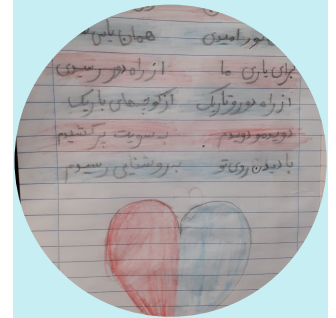 نور امیدی همان
برای یاری ما از راه دور رسیدی
از راه دور و تاریک از کوچه‌های باریک
دویدم و دویدم به سویت پر کشیدم
با دیدن روی تو به روشنایی رسیدم